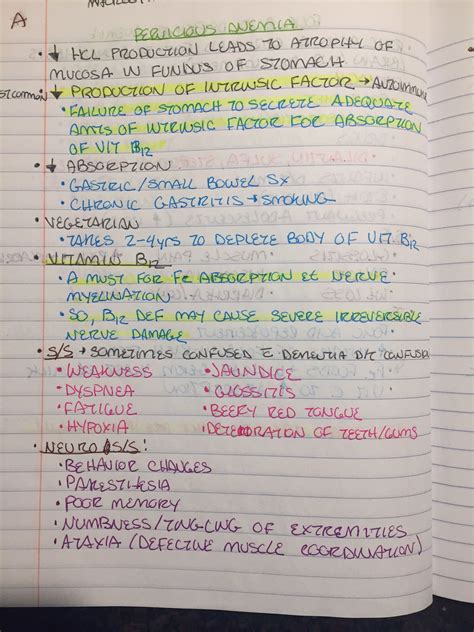 A
PERNICIOUS ANEMIA
• ↓ HCL PRODUCTION LEADS TO ATROPHY OF
MUCOSA IN FUNDUS OF STOMACH
• ↓ PRODUCTION OF INTRINSIC FACTOR → AUTOIMMUNE
• FAILURE OF STOMACH TO SECRETE ADEQUATE
AMTS OF INTRINSIC FACTOR FOR ABSORPTION
OF VIT B12
• ↓ ABSORPTION
• GASTRIC/SMALL BOWEL SX
• CHRONIC GASTRITIS → SMOKING
• VEGETARIAN
• TAKES 2-4yrs TO DEPLETE BODY OF VIT B12
• VITAMIN B12
• A MUST FOR Fe ABSORPTION et NERVE
MYELINATION
• SO, B12 DEF MAY CAUSE SEVERE IRREVERSIBLE
NERVE DAMAGE
• S/S → SOMETIMES CONFUSED c̄ DEMENTIA D/t CONFUSION
• WEAKNESS • JAUNDICE
• DYSPNEA • GLOSSITIS
• FATIGUE • BEEFY RED TONGUE
• HYPOXIA • DETERIORATION OF TEETH/GUMS
• NEURO S/S:
• BEHAVIOR CHANGES
• PARESTHESIA
• POOR MEMORY
• NUMBNESS/TINGLING OF EXTREMITIES
• ATAXIA (DEFECTIVE MUSCLE COORDINATION)